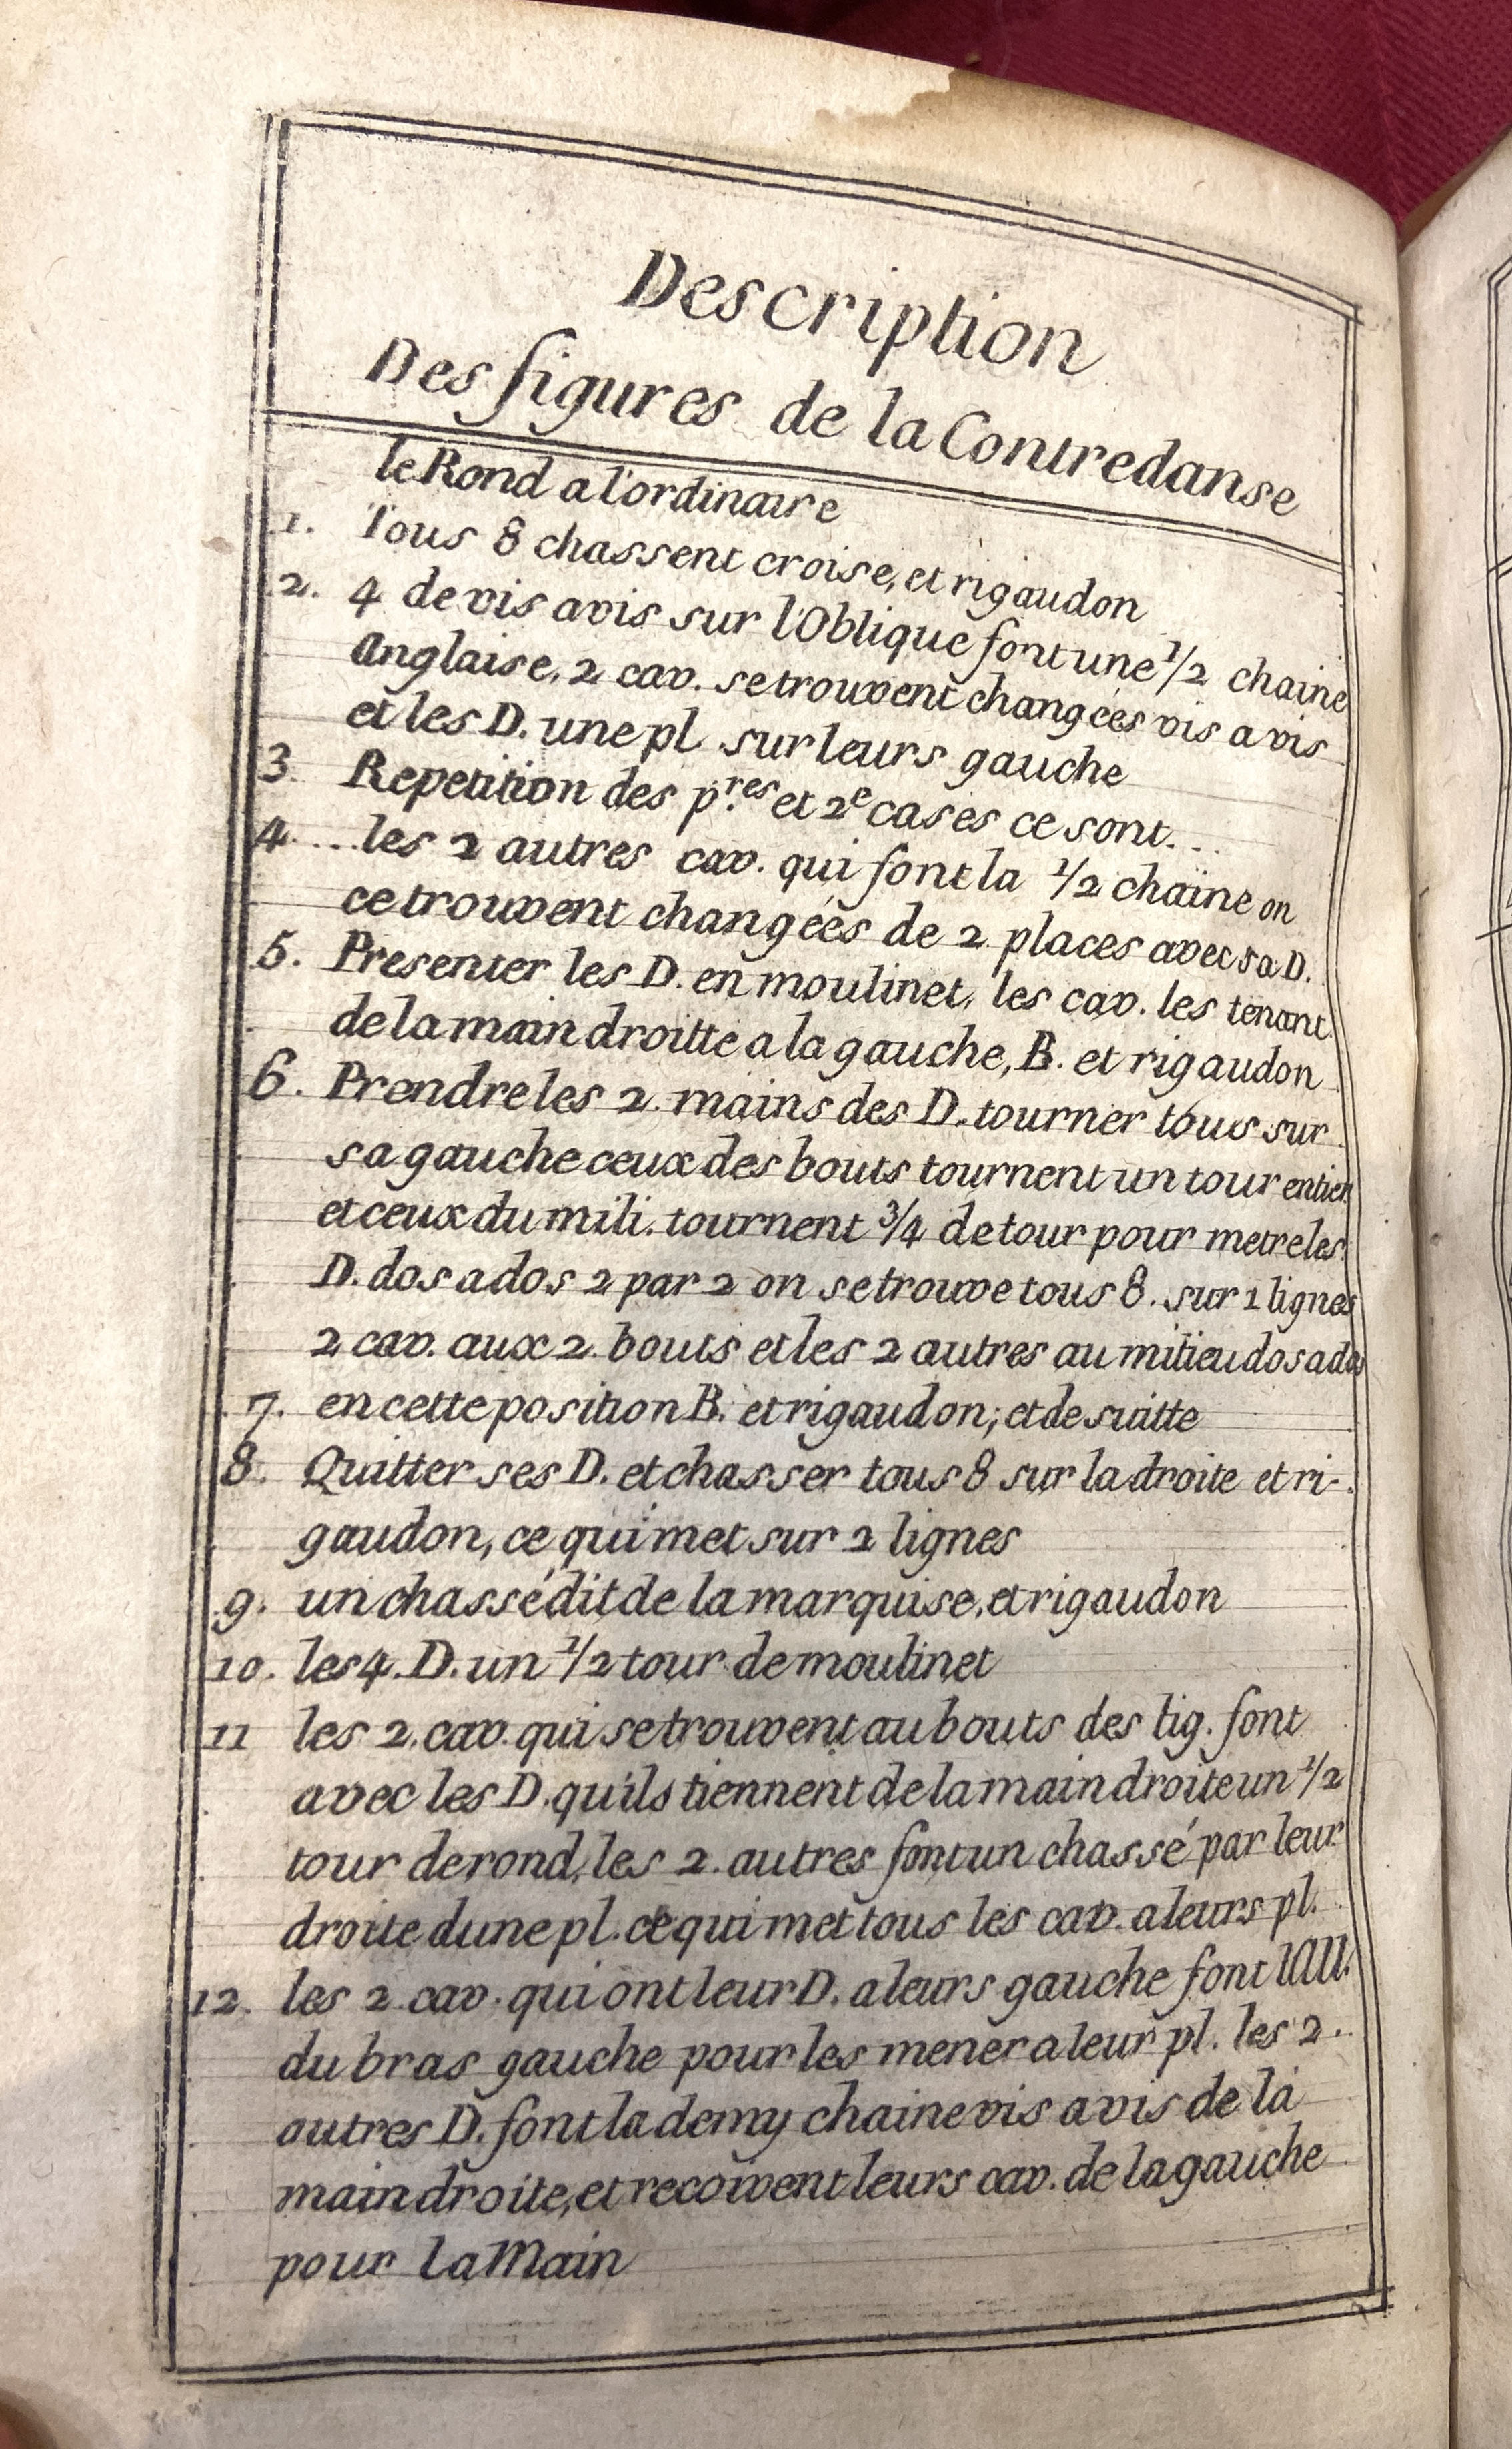 Description
Des figures de la Contredanse
le Rond a l'ordinaire
1. Tous 8 chassent croise, et rigaudon
2. 4 de vis avis sur l'Oblique font une 1/2 chaine
Anglaise, 2 cav. se trouvent changées vis a vis
et les D. une pl. sur leurs gauche
3 Repetition des p.res et 2e cases ce sont...
4...les 2 autres cav. qui font la 1/2 chaine on
ce trouvent changées de 2 places avec sa D.
5. Presenter les D. en moulinet, les cav. les tenant
de la main droitte a la gauche, B. et rigaudon
6. Prendre les 2 mains des D. tourner tous sur
sa gauche ceux des bouts tournent un tour entier
et ceux du mili. tournent 3/4 de tour pour metre les
D. dos a dos 2 par 2 on se trouve tous 8. sur 1 lignes
2 cav. aux 2 bouts et les 2 autres au milieu dos a dos
7. en cette position B. et rigaudon; et de suitte
8. Quitter ses D. et chasser tous 8 sur la droite et ri-
gaudon, ce qui met sur 2 lignes
9. un chassé dit de la marquise, et rigaudon
10. les 4. D. un 1/2 tour de moulinet
11 les 2. cav. qui se trouvent au bouts des lig. font
avec les D. qu'ils tiennent de la main droite un 1/2
tour de rond, les 2. autres font un chassé par leur
droite dune pl. ce qui met tous les cav. a leurs pl.
12. les 2 cav. qui ont leur D. a leurs gauche font l'All.
du bras gauche pour les mener a leur pl. les 2.
autres D. font la demy chaine vis a vis de la
main droite, et recoivent leurs cav. de la gauche
pour La Main